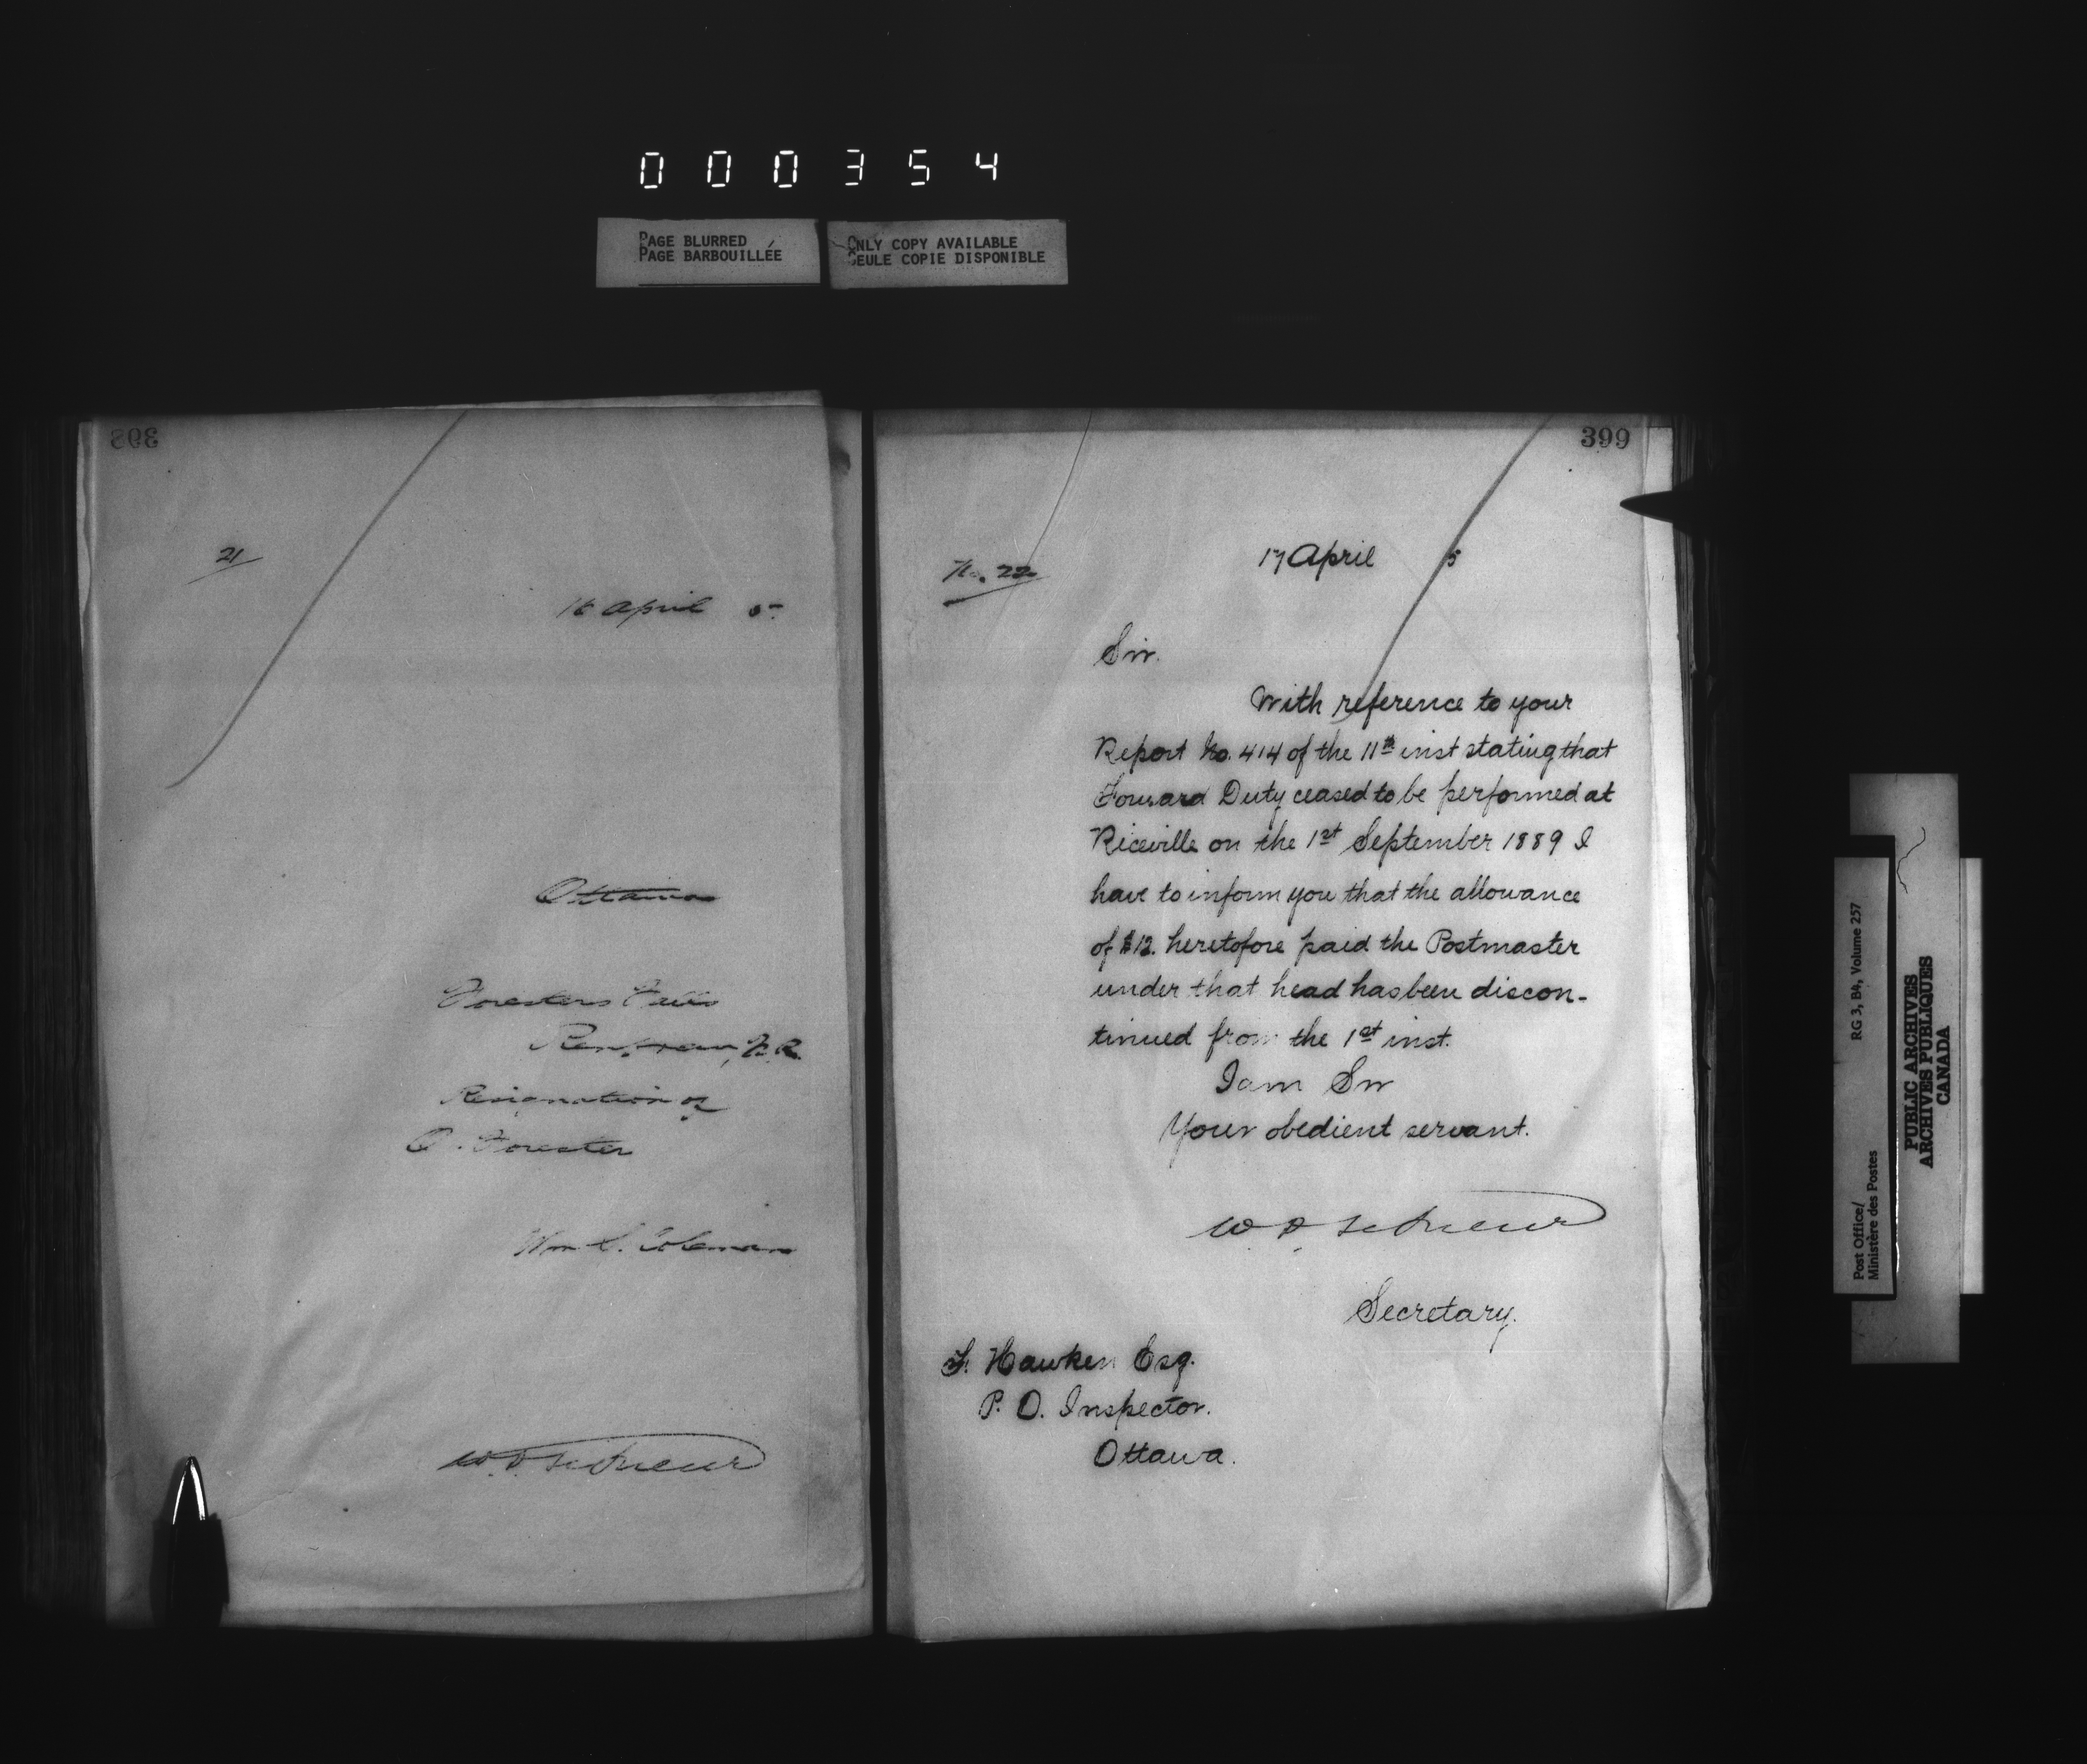 000354
PAGE BLURRED
PAGE BARBOUILLÉE
ONLY COPY AVAILABLE
SEULE COPIE DISPONIBLE
398
21
16 April 5
Ottawa
Foresters Falls
Renfrew, N.R.
Resignation of
O. Forester
Wm. S. Coleman
W.D. LeSueur
399
No. 22
17 April 5
Sir.
With reference to your
Report No. 414 of the 11th inst stating that
Forward Duty ceased to be performed at
Riceville on the 1st September 1889 I
have to inform you that the allowance
of $12. heretofore paid the Postmaster
under that head has been discon-
tinued from the 1st inst.
I am Sir
Your obedient servant.
W. D. LeSueur
Secretary.
F. Hawken Esq.
P. O. Inspector.
Ottawa.
Post Office/
Ministère des Postes
RG 3, B4, Volume 257
PUBLIC ARCHIVES
ARCHIVES PUBLIQUES
CANADA